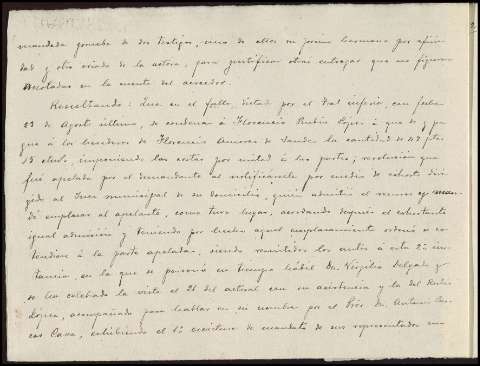 mandada prueba de dos testigos, uno de ellos su primo hermano por afini-
dad y otro criado de la actora, para justificar otras entregas que no figuran
anotadas en la cuenta del acreedor.
Resultando: Que en el fallo, dictado por el Tral inferior, con fecha
de Agosto último, se condena á Florencio Rubio López á que dé y pa-
gue á los herederos de Florencio Amores de Landa la cantidad de 47 ptas
15 ctmos, imponiendo las costas por mitad á las partes; resolución que
fué apelada por el demandante al notificársele por medio de exhorto diri-
gido al Juez municipal de su domicilio, quien admitió el recurso y man-
dó emplazar al apelante, como tuvo lugar, acordando después el exhortante
igual admisión y teniendo por hecho aquel emplazamiento ordenó se ex-
tendiese á la parte apelada, siendo remitidos los autos á esta 2ª ins-
tancia, en la que se personó en tiempo hábil Dn. Virgilio Delgado y
se ha celebrado la vista el 21 del actual con su asistencia y la del Rubio
López, acompañado para hablar en su nombre por el Dn. Antonio
Cava, exhibiendo el 1º escritura de mandato de sus representados